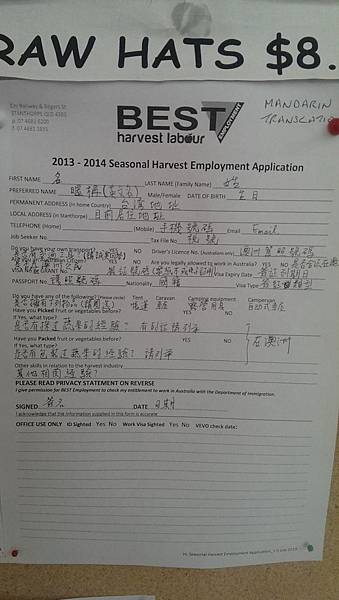 RAW HATS $8.
Cnr Railway & Rogers St
STANTHORPE QLD 4380
p: 07 4681
f: 07 4681
BEST
EMPLOYMENT
harvest labour
MANDARIN
TRANSLATION
2013 - 2014 Seasonal Harvest Employment Application
FIRST NAME 名 LAST NAME (Family Name) 姓
PREFERRED NAME 暱稱(英文名) Male/Female DATE OF BIRTH 生日
PERMANENT ADDRESS (in home Country) 台灣地址
LOCAL ADDRESS (in Stanthorpe) 目前居住地址
TELEPHONE (Home) (Mobile) 手機號碼 Email Email
Job Seeker No. Tax File No 稅號
Do you have your own transport? YES NO Driver's Licence No. (Australian only) 澳洲駕照號碼
Are you an Australian Citizen? YES NO Are you legally allowed to work in Australia? YES NO
VISA GRANT No. 簽證號碼 Visa Expiry Date 簽證到期日
PASSPORT No. 護照號碼 Nationality 國籍 Visa Type 簽證類型
Do you have any of the following? (Please circle) Tent Caravan Camping equipment Campervan
帳篷 露營用具
Have you Picked fruit or vegetables before? YES NO
If Yes, what type?
是否有採過蔬果的經驗?
Have you Packed fruit or vegetables before? YES NO
If Yes, what type?
在澳洲
是否有包裝過蔬果的經驗?
Other skills in relation to the harvest industry
其他相關經驗?
PLEASE READ PRIVACY STATEMENT ON REVERSE
I give permission for BEST Employment to check my entitlement to work in Australia with the Department of Immigration.
SIGNED 簽名 DATE 日期
I acknowledge that the information supplied in this form is accurate
OFFICE USE ONLY ID Sighted Yes No Work Visa Sighted Yes No VEVO check date: